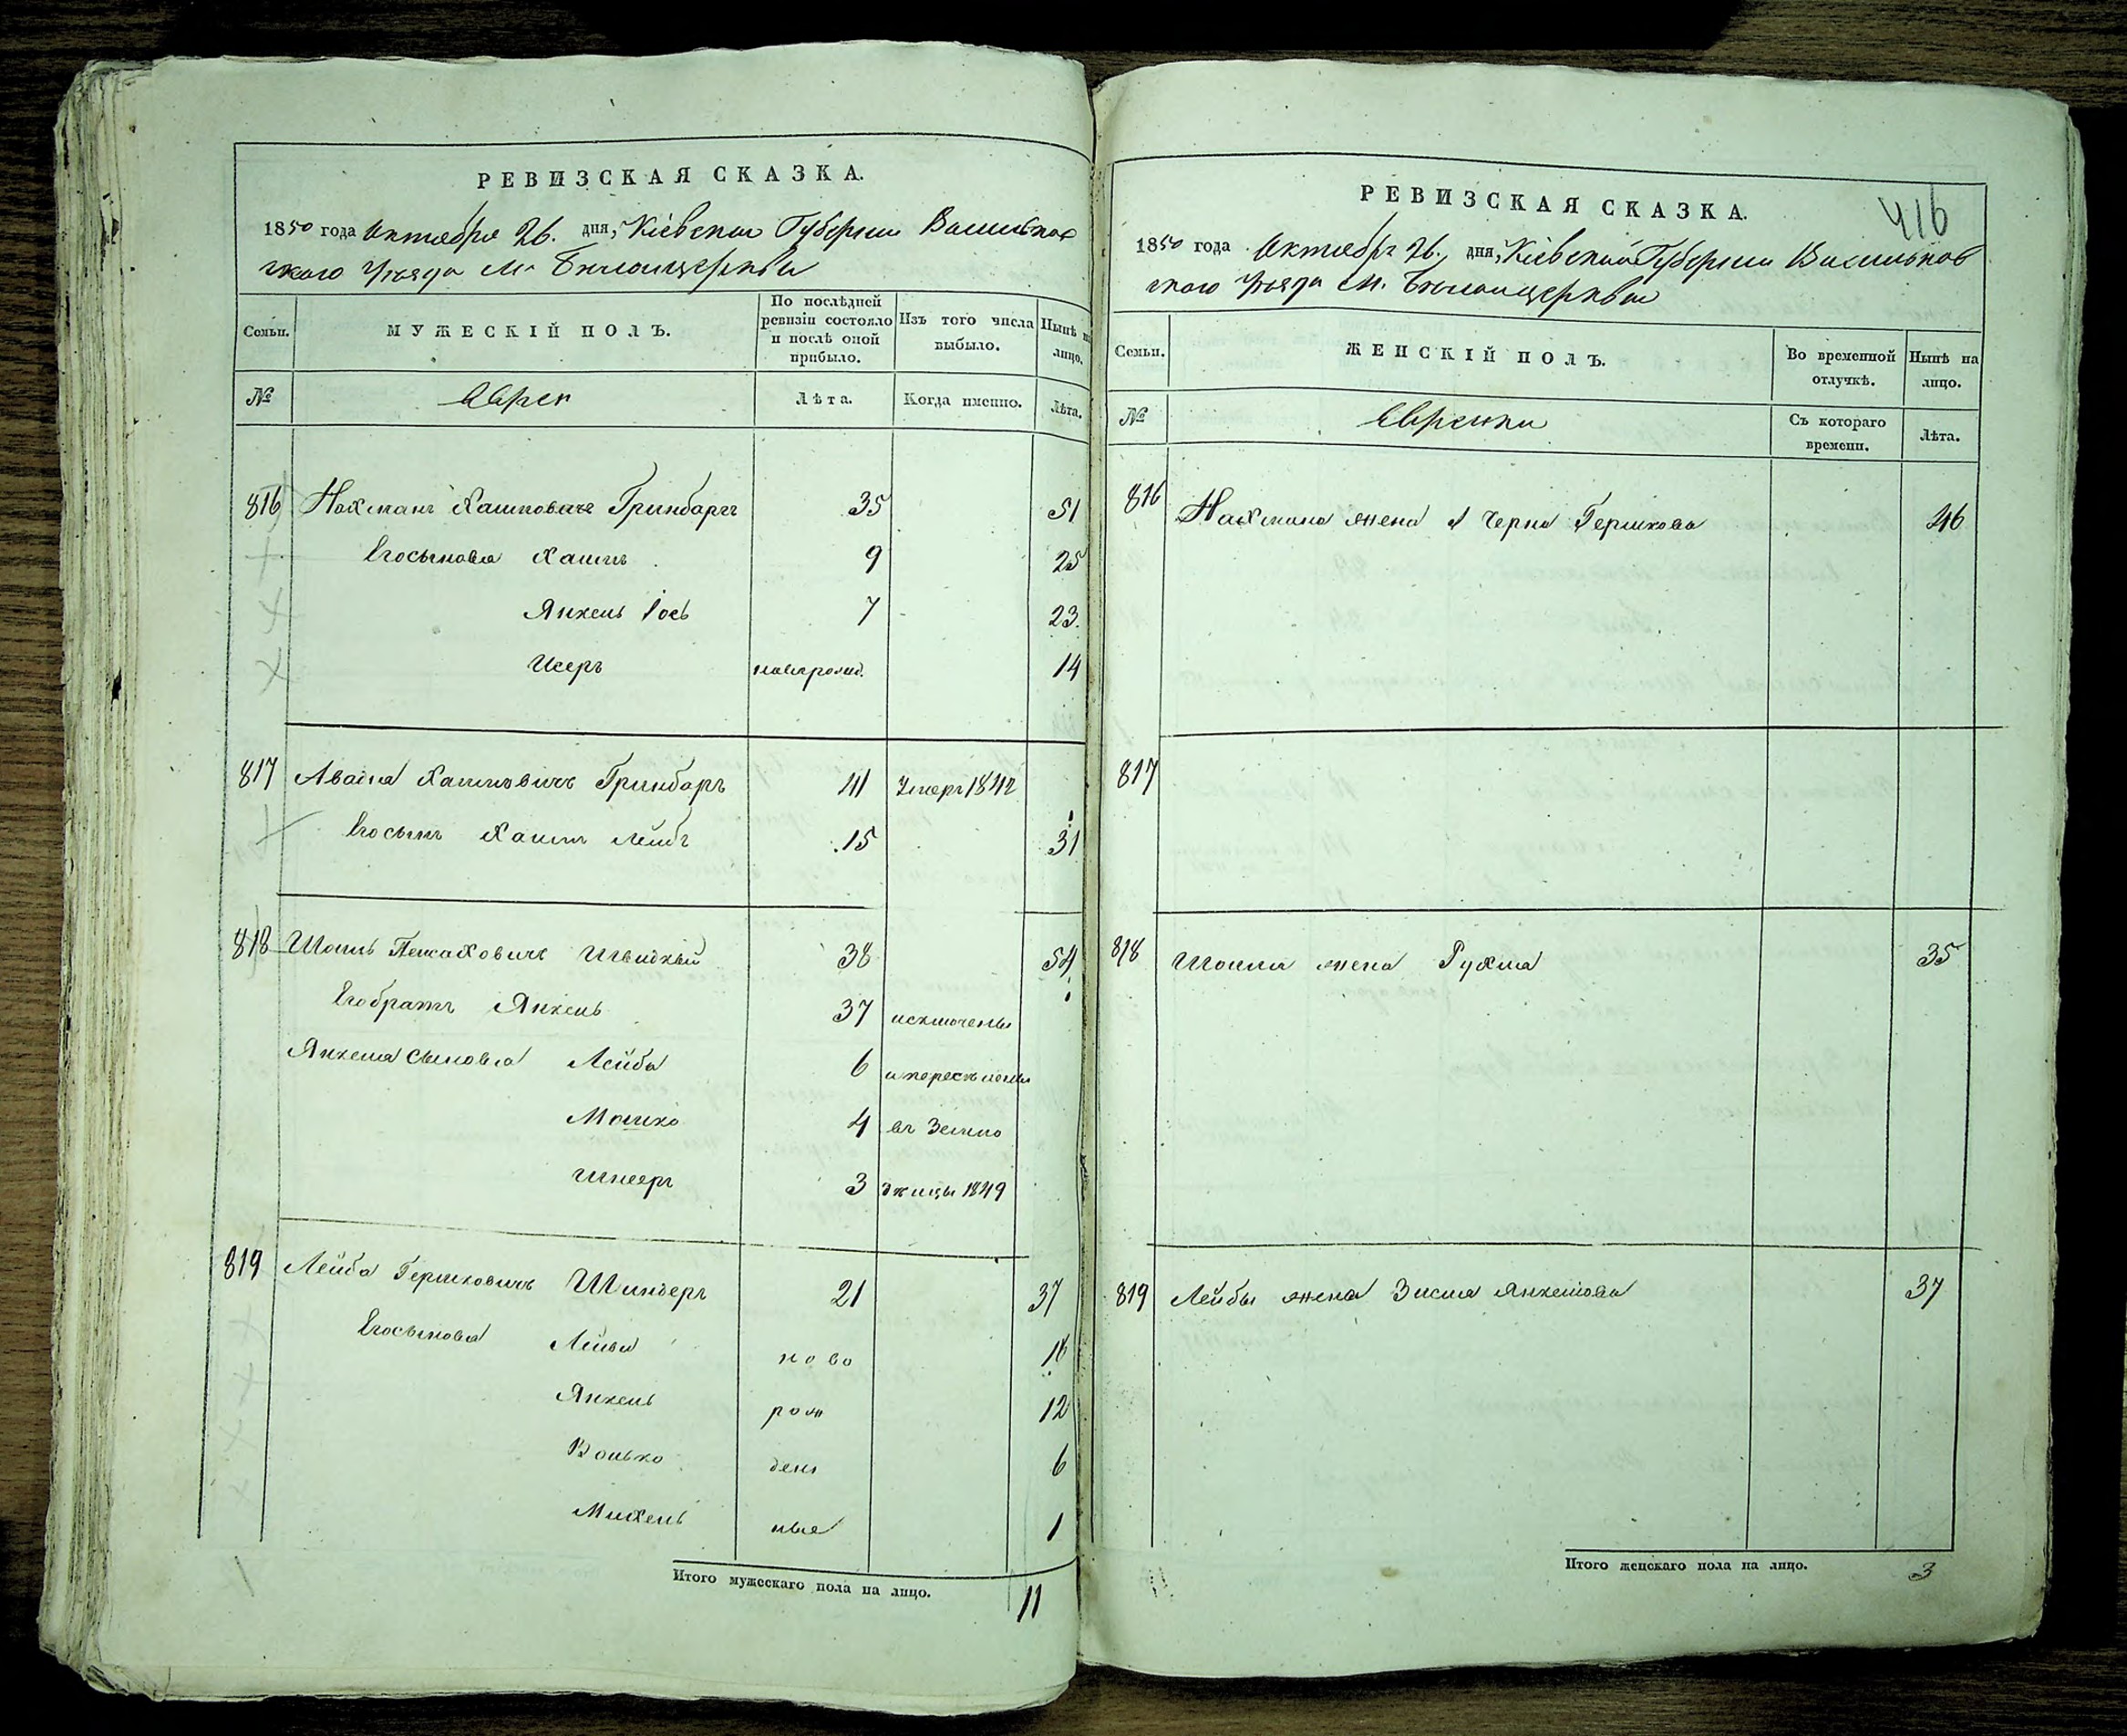 РЕВИЗСКАЯ СКАЗКА.
1850 года Октября 26. дня, Кіевской Губерніи Васильков
скаго Уѣзда М. Бѣлоцеркви
Семьи.
МУЖЕСКІЙ ПОЛЪ.
По послѣдней ревизіи состояло и послѣ оной прибыло.
Изъ того числа выбыло.
Нынѣ на лицо.
№
Евреи
Лѣта.
Когда именно.
Лѣта.
816 Нахманъ Хаимовичъ Гринбаргъ 35 51
Его сыновья Хаимъ 9 25
Янкель Іось 7 23
Исеръ новорожд. 14
817 Хаимовичъ Гринбаргъ 41 Умеръ 1842
Его сынъ Хаимъ Лейбъ 15 31
818 Шоилъ Пейсаховичъ Швидкій 38 54
Его братъ Янкель 37 исключены
Янкеля сыновья Лейба 6 и переселены
Мошко 4 въ Земле
Шнееръ 3 дѣльцы 1849
819 Лейба Гершковичъ Шиндеръ 21 37
Его сыновья Лейви ново 16
Янкель рож 12
Волько ден 6
Михель ные 1
Итого мужескаго пола на лицо. 11
416
РЕВИЗСКАЯ СКАЗКА.
1850 года Октября 26. дня, Кіевской Губерніи Васильков
скаго Уѣзда М. Бѣлоцеркви
Семьи.
ЖЕНСКІЙ ПОЛЪ.
Во временной отлучкѣ.
Нынѣ на лицо.
№
Еврейки
Съ котораго времени.
Лѣта.
816 Нахмана жена Черна Гершкова 46
817
818 Шоила жена Рухля 35
819 Лейбы жена Зисля Янкелева 37
Итого женскаго пола на лицо. 3